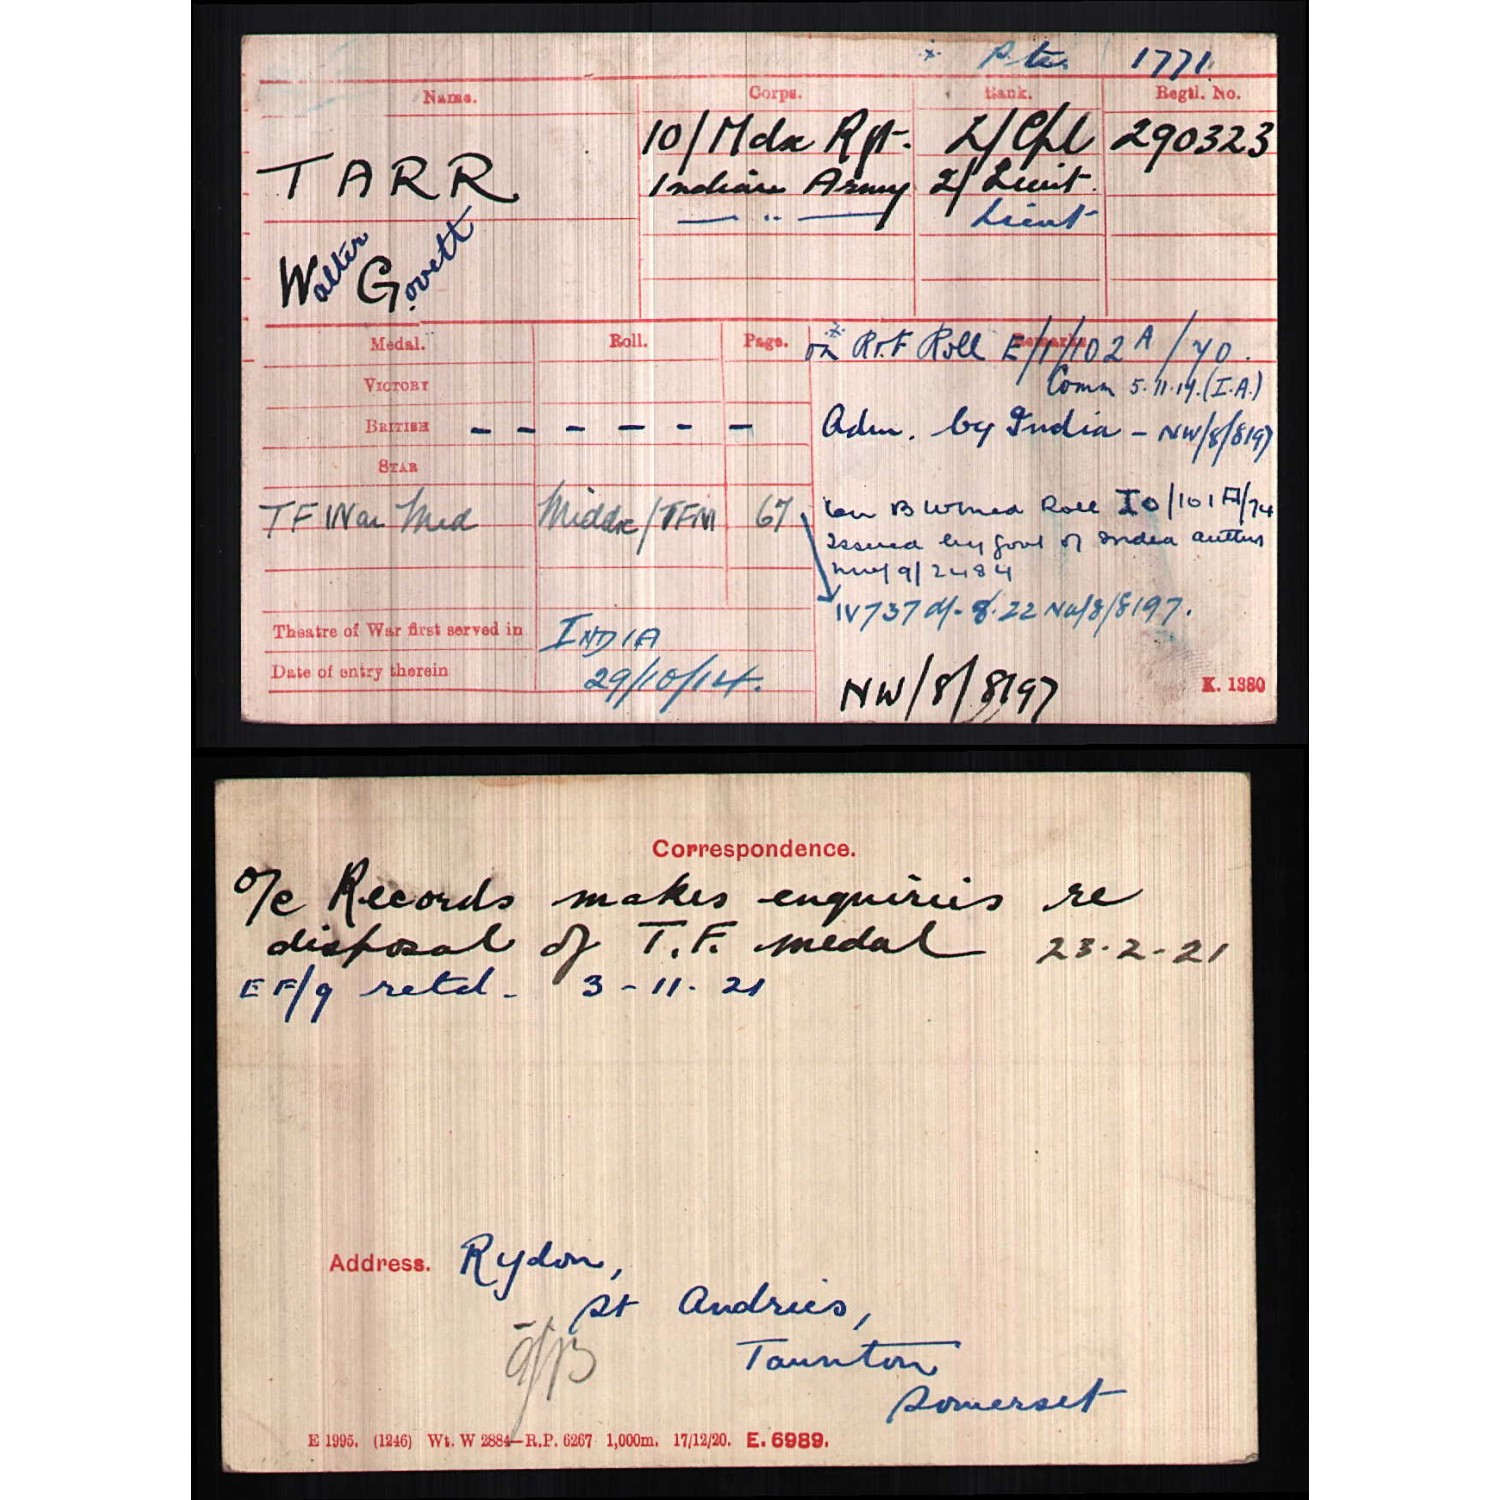 * Pte 1771
Name. Corps. Rank. Regtl. No.
TARR 10/Mdx Rgt. L/Cpl 290323
Indian Army 2/Lieut.
— " — Lieut
Walter Govett
Medal. Roll. Page. Remarks
* on R.F Roll E/1/102 A/70.
Comm 5.11.17.(I.A.)
VICTORY
BRITISH - - - - - - Adm. by India - NW/8/8197
STAR
TF War Med Middx/TFM 67 B W med Roll IO/101A/74
Issued by Govt of India
9/2484
IV737 d/- 8.22 NW/8/8197.
Theatre of War first served in INDIA
Date of entry therein 29/10/14.
NW/8/8197
K. 1380
Correspondence.
o/c Records makes enquiries re
disposal of T.F. medal 23-2-21
EF/9 retd. 3-11-21
Address. Rydon,
St Andries,
Taunton
Somerset
E 1995. (1246) Wt. W 2884—R.P. 6267 1,000m. 17/12/20. E. 6989.